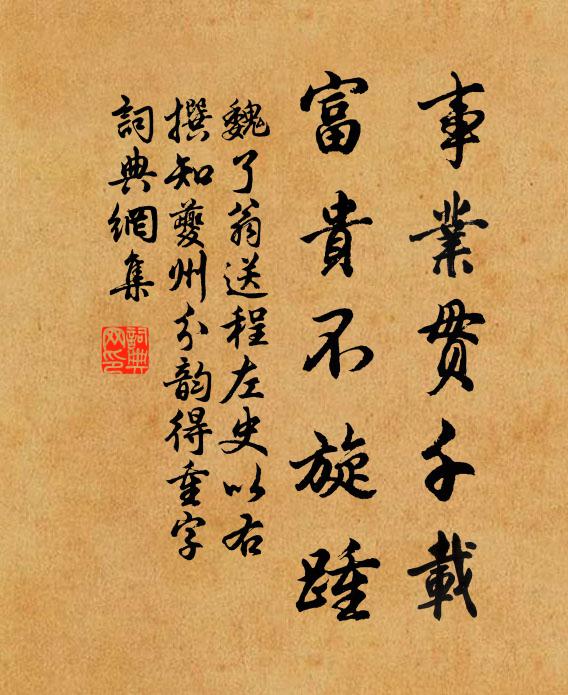 事業貫千載
富貴不旋踵
魏了翁送程左史以右
撰知夔州分韵得重字
詞典網集
詞典网印